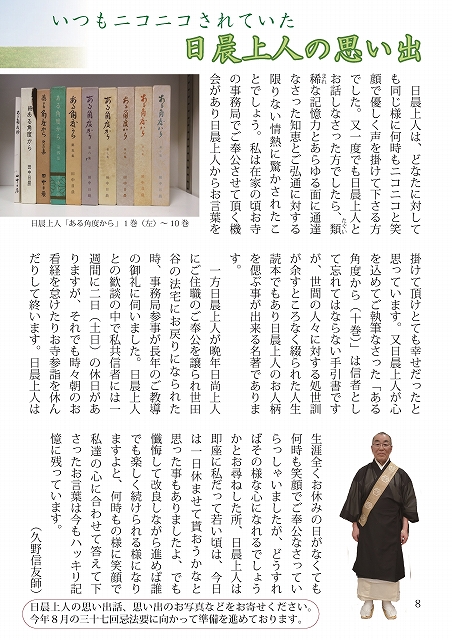 いつもニコニコされていた
日晨上人の思い出
日晨上人は、どなたに対して
も同じ様に何時もニコニコと笑
顔で優しく声を掛けて下さる方
でした。又一度でも日晨上人と
お話しなさった方でしたら、類
稀な記憶力とあらゆる面に通達
なさった知恵とご弘通に対する
限りない情熱に驚かされたこ
とでしょう。私は在家の頃お寺
の事務局でご奉公させて頂く機
会があり日晨上人からお言葉を
日晨上人「ある角度から」1巻（左）～10巻
掛けて頂けとても幸せだったと
思っています。又日晨上人が心
を込めてご執筆なさった「ある
角度から（十巻）」は信者とし
て忘れてはならない手引書です
が、世間の人々に対する処世訓
が余すところなく綴られた人生
読本でもあり日晨上人のお人柄
を偲ぶ事が出来る名著でありま
す。
一方日晨上人が晩年日尚上人
にご住職のご奉公を譲られ世田
谷の法宅にお戻りになられた
時、事務局参事が長年のご教導
の御礼に伺いました。日晨上人
との歓談の中で私共信者には一
週間に二日（土日）の休日があ
りますが、それでも時々朝のお
看経を怠けたりお寺参詣を休ん
だりして終います。日晨上人は
生涯全くお休みの日がなくても
何時も笑顔でご奉公なさってい
らっしゃいましたが、どうすれ
ばその様な心になれるでしょう
かとお尋ねした所、日晨上人は
即座に私だって若い頃は、今日
は一日休ませて貰おうかなと
思った事もありましたよ、でも
懺悔して改良しながら進めば誰
でも楽しく続けられる様になり
ますよと、何時もの様に笑顔で
私達の心に合わせて答えて下
さったお言葉は今もハッキリ記
憶に残っています。
（久野信友師）
日晨上人の思い出話、思い出のお写真などをお寄せください。
今年８月の三十七回忌法要に向かって準備を進めております。
8